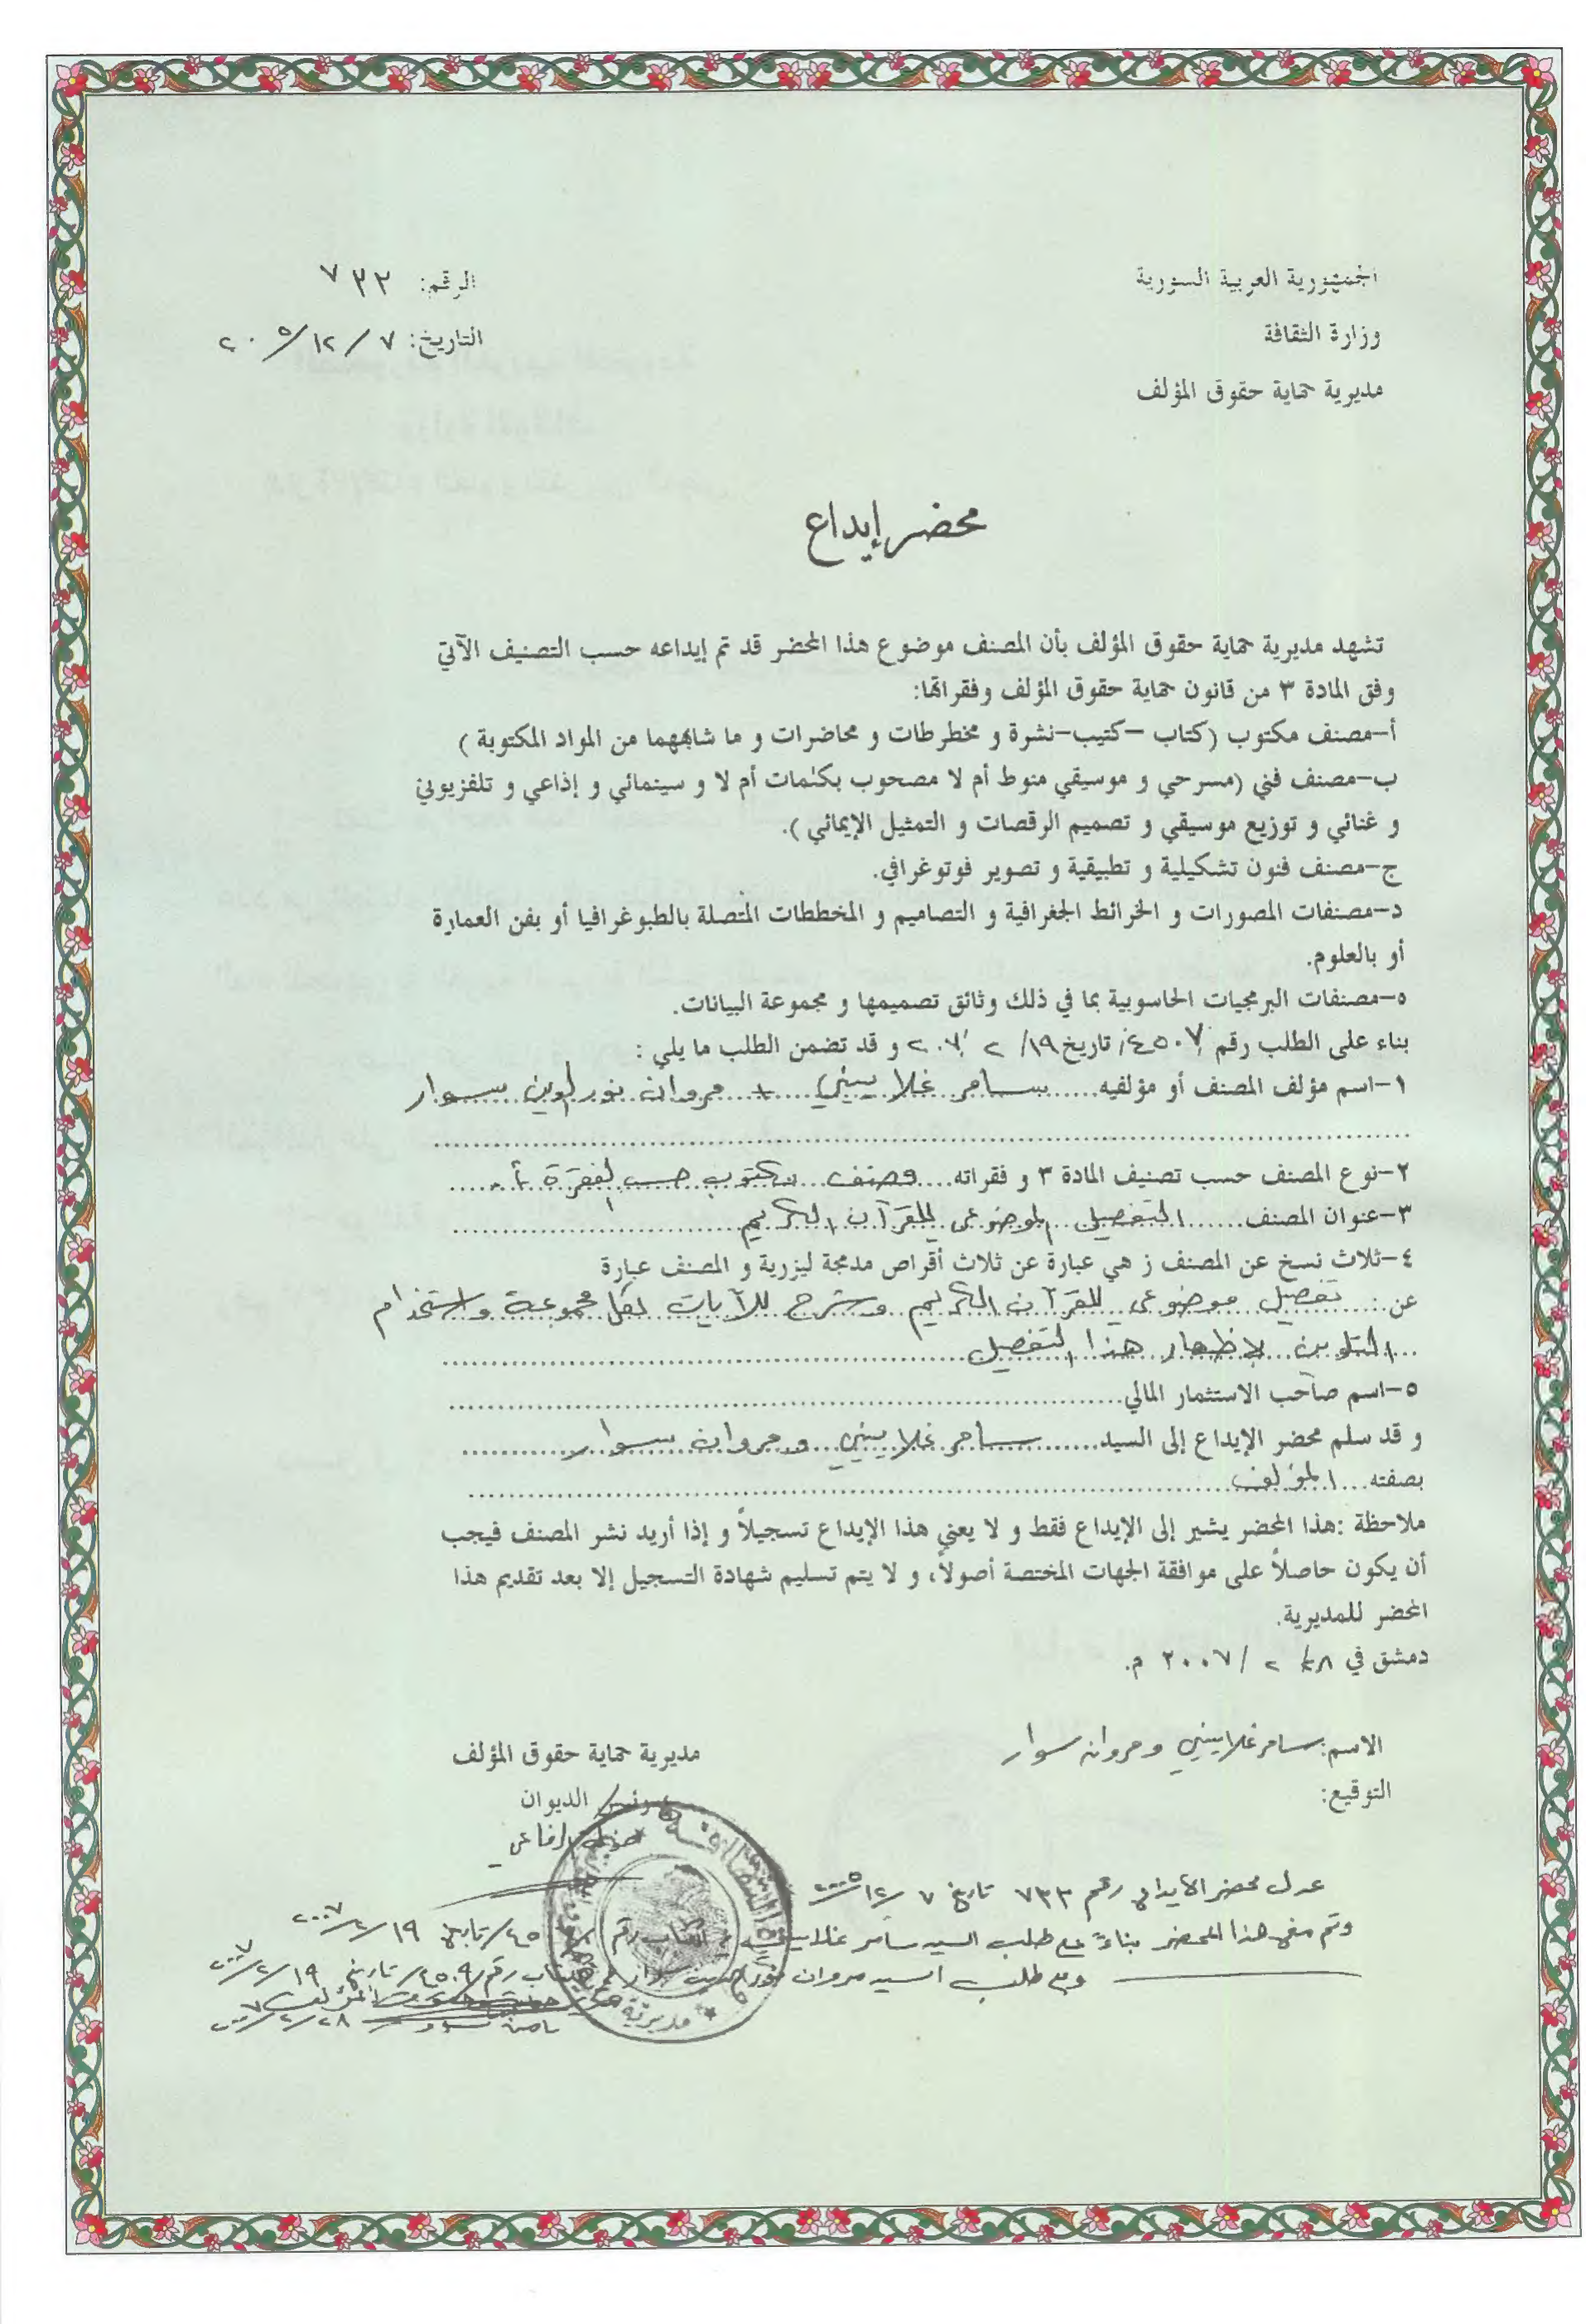 الجمهورية العربية السورية
وزارة الثقافة
مديرية حماية حقوق المؤلف
الرقم: ٧٣٣
التاريخ: ٧ / ١٢ / ٢٠٠٥
محضر إيداع
تشهد مديرية حماية حقوق المؤلف بأن المصنف موضوع هذا المحضر قد تم إيداعه حسب التصنيف الآتي
وفق المادة ٣ من قانون حماية حقوق المؤلف وفقراتها:
أ-مصنف مكتوب (كتاب -كتيب-نشرة و مخطرطات و محاضرات و ما شابههما من المواد المكتوبة )
ب-مصنف فني (مسرحي و موسيقي منوط أم لا مصحوب بكلمات أم لا و سينمائي و إذاعي و تلفزيوني
و غنائي و توزيع موسيقي و تصميم الرقصات و التمثيل الإيمائي ).
ج-مصنف فنون تشكيلية و تطبيقية و تصوير فوتوغرافي.
د-مصنفات المصورات و الخرائط الجغرافية و التصاميم و المخططات المتصلة بالطبوغرافيا أو بفن العمارة
أو بالعلوم.
ه-مصنفات البرمجيات الحاسوبية بما في ذلك وثائق تصميمها و مجموعة البيانات.
بناء على الطلب رقم /٤٥٠٧/ تاريخ ١٩/ ٢ /٢٠٠٧ و قد تضمن الطلب ما يلي :
١-اسم مؤلف المصنف أو مؤلفيه...... سامر غلاييني + مروان نور الدين سوار
٢-نوع المصنف حسب تصنيف المادة ٣ و فقراته.... مصنف مكتوب حسب الفقرة أ.
٣-عنوان المصنف...... التفصيل الموضوعي للقرآن الكريم
٤-ثلاث نسخ عن المصنف ز هي عبارة عن ثلاث أقراص مدمجة ليزرية و المصنف عبارة
عن: تفصيل موضوعي للقرآن الكريم وشرح للآيات لكل مجموعة واستخدام
التلوين لإظهار هذا التفصيل
٥-اسم صاحب الاستثمار المالي
و قد سلم محضر الإيداع إلى السيد...... سامر غلاييني و مروان سوار
بصفته... المؤلف
ملاحظة :هذا المحضر يشير إلى الإيداع فقط و لا يعني هذا الإيداع تسجيلاً و إذا أريد نشر المصنف فيجب
أن يكون حاصلاً على موافقة الجهات المختصة أصولاً، و لا يتم تسليم شهادة التسجيل إلا بعد تقديم هذا
المحضر للمديرية.
دمشق في ٢٨/ ٢ / ٢٠٠٧ م.
الاسم: سامر غلاييني و مروان سوار
التوقيع:
مديرية حماية حقوق المؤلف
رئيس الديوان
عدل محضر الايداع رقم ٧٣٣ تاريخ ٧ /١٢/ ٢٠٠٥
وتم منح هذا المحضر بناءً على طلب السيد سامر غلاييني رقم تاريخ ١٩ /٢/ ٢٠٠٧
وعلى طلب السيد مروان نور الدين سوار رقم /٤٥٠٩/ تاريخ ١٩ /٢/ ٢٠٠٧
٢٨ /٢/ ٢٠٠٧